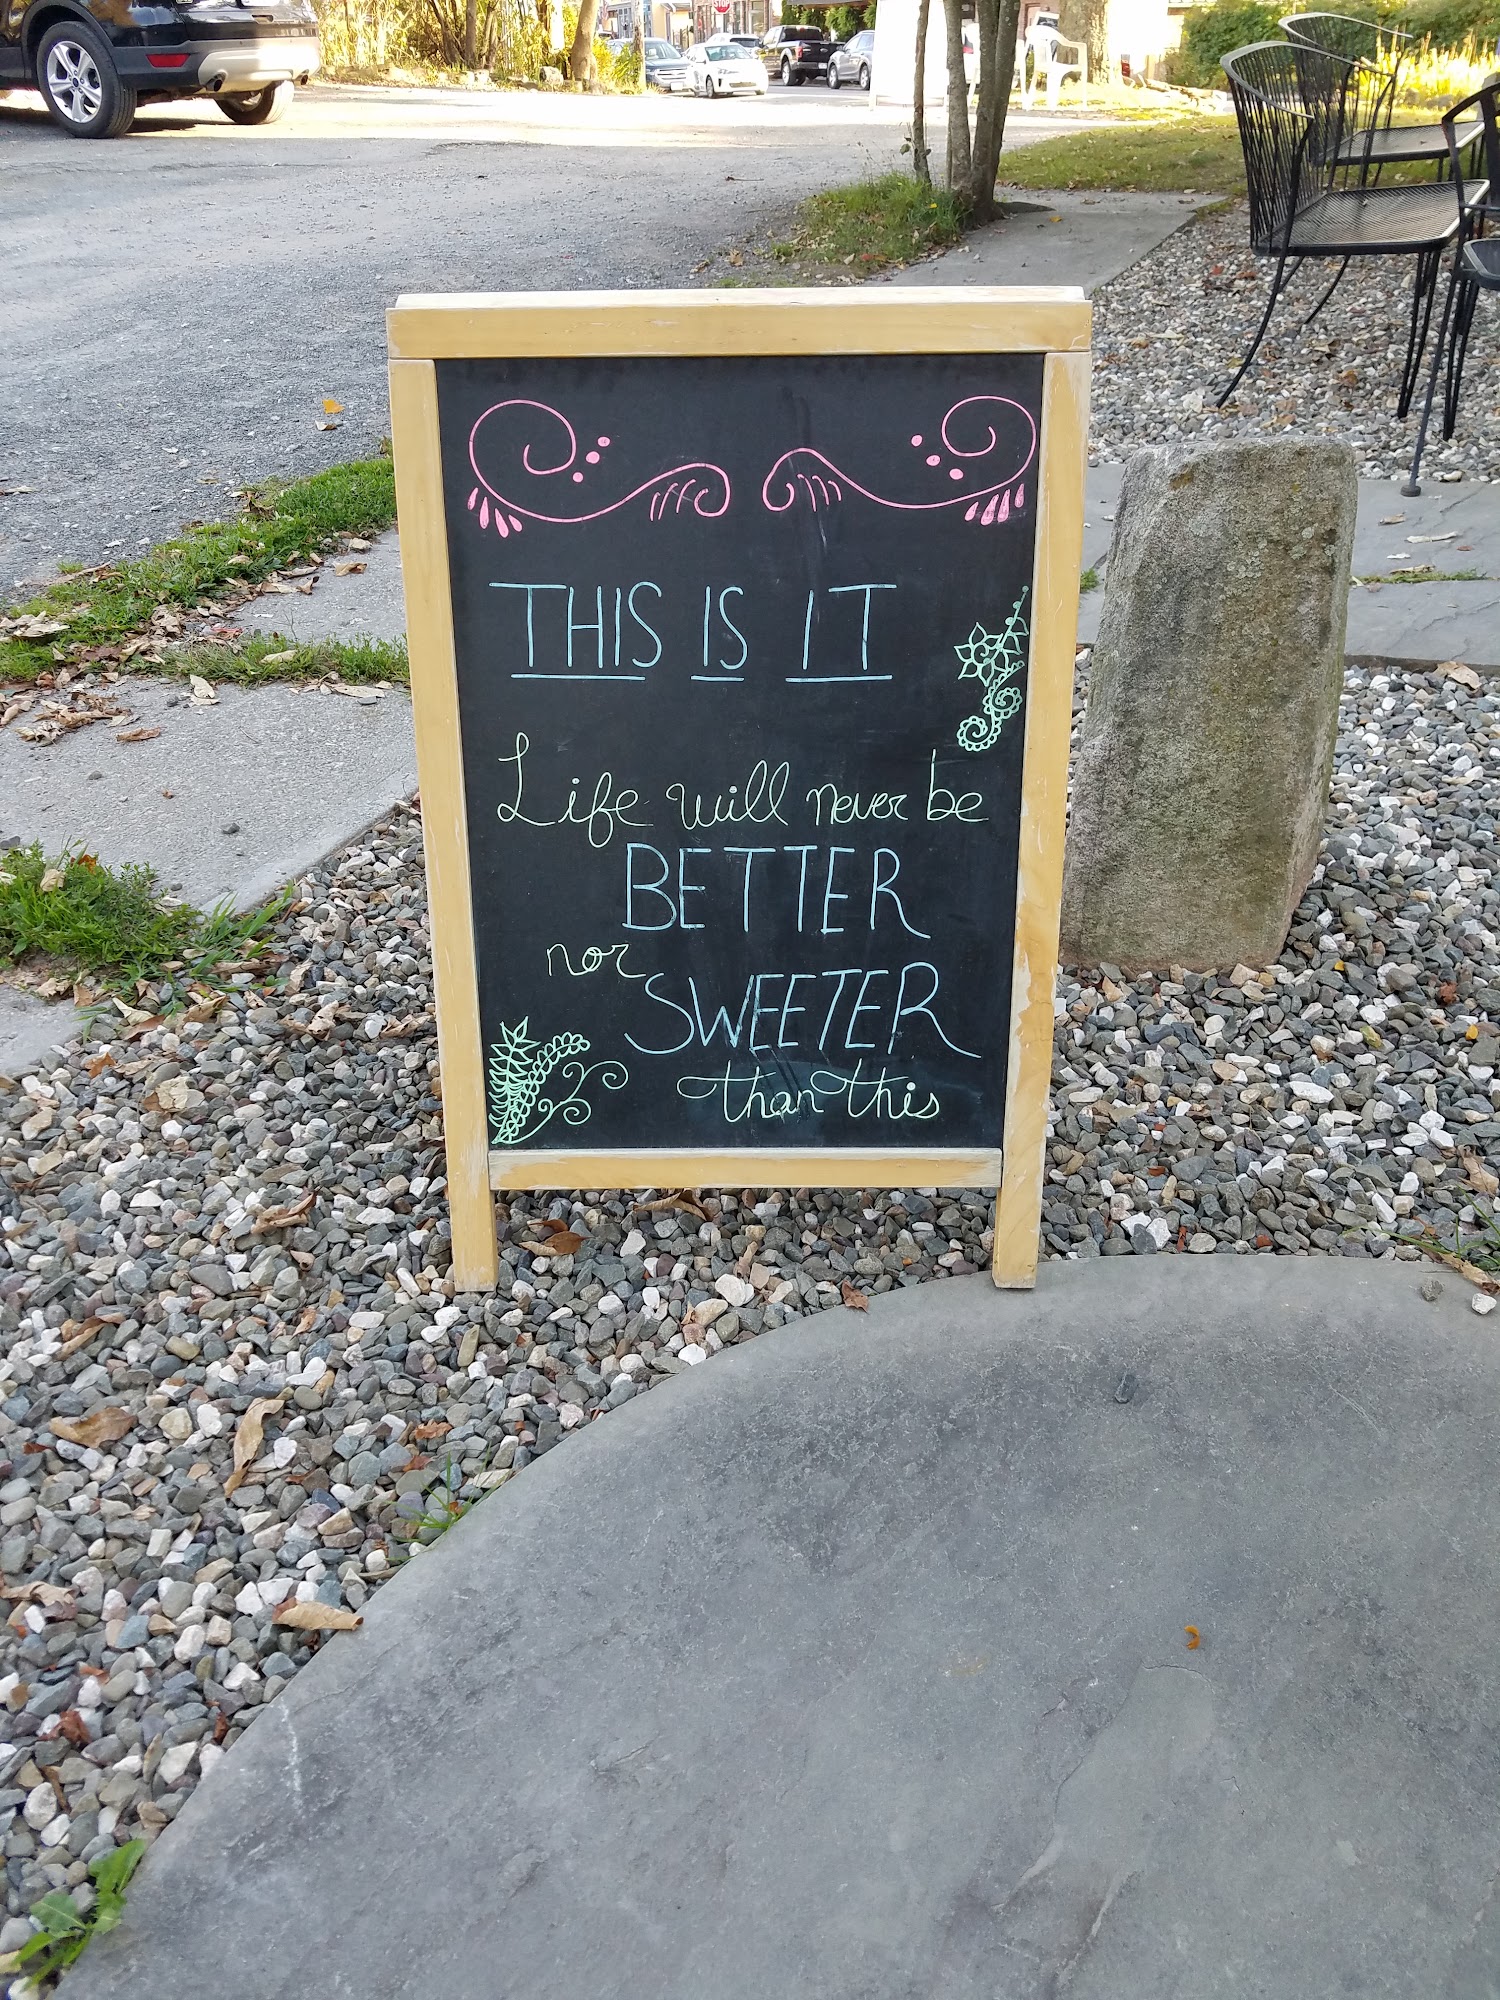 STOP
THIS IS IT
Life will never be
BETTER
nor
SWEETER
than this